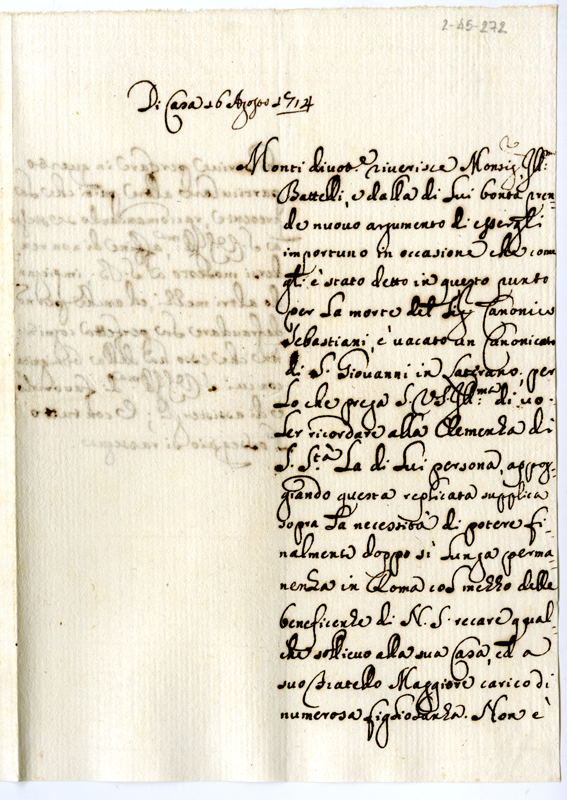 2-45-272
Di Casa 16 Agosto 1714
Monti divot.e riverisce Monsig.r Ill.mo
Battelli, e dalla di Lui bontà pren-
de nuovo argumento di essergli
importuno in occasione che come
gli è stato detto in questo punto
per la morte del Sig.r Canonico
Sebastiani, è vacato un Canonicato
di S. Giovanni in Laterano. per
Lo che prega S. VS. Ill.ma di vo-
ler ricordare alla Clemenza di
S. S.tà La di Lui persona, appog-
giando questa replicata supplica
sopra La necessità di potere fi-
nalmente doppo sì Lunga perma-
nenza in Roma col mezzo delle
beneficenze di N. S. recare qual-
che sollievo alla sua Casa, ed a
suo Fratello Maggiore carico di
numerosa figliolanza. Non è